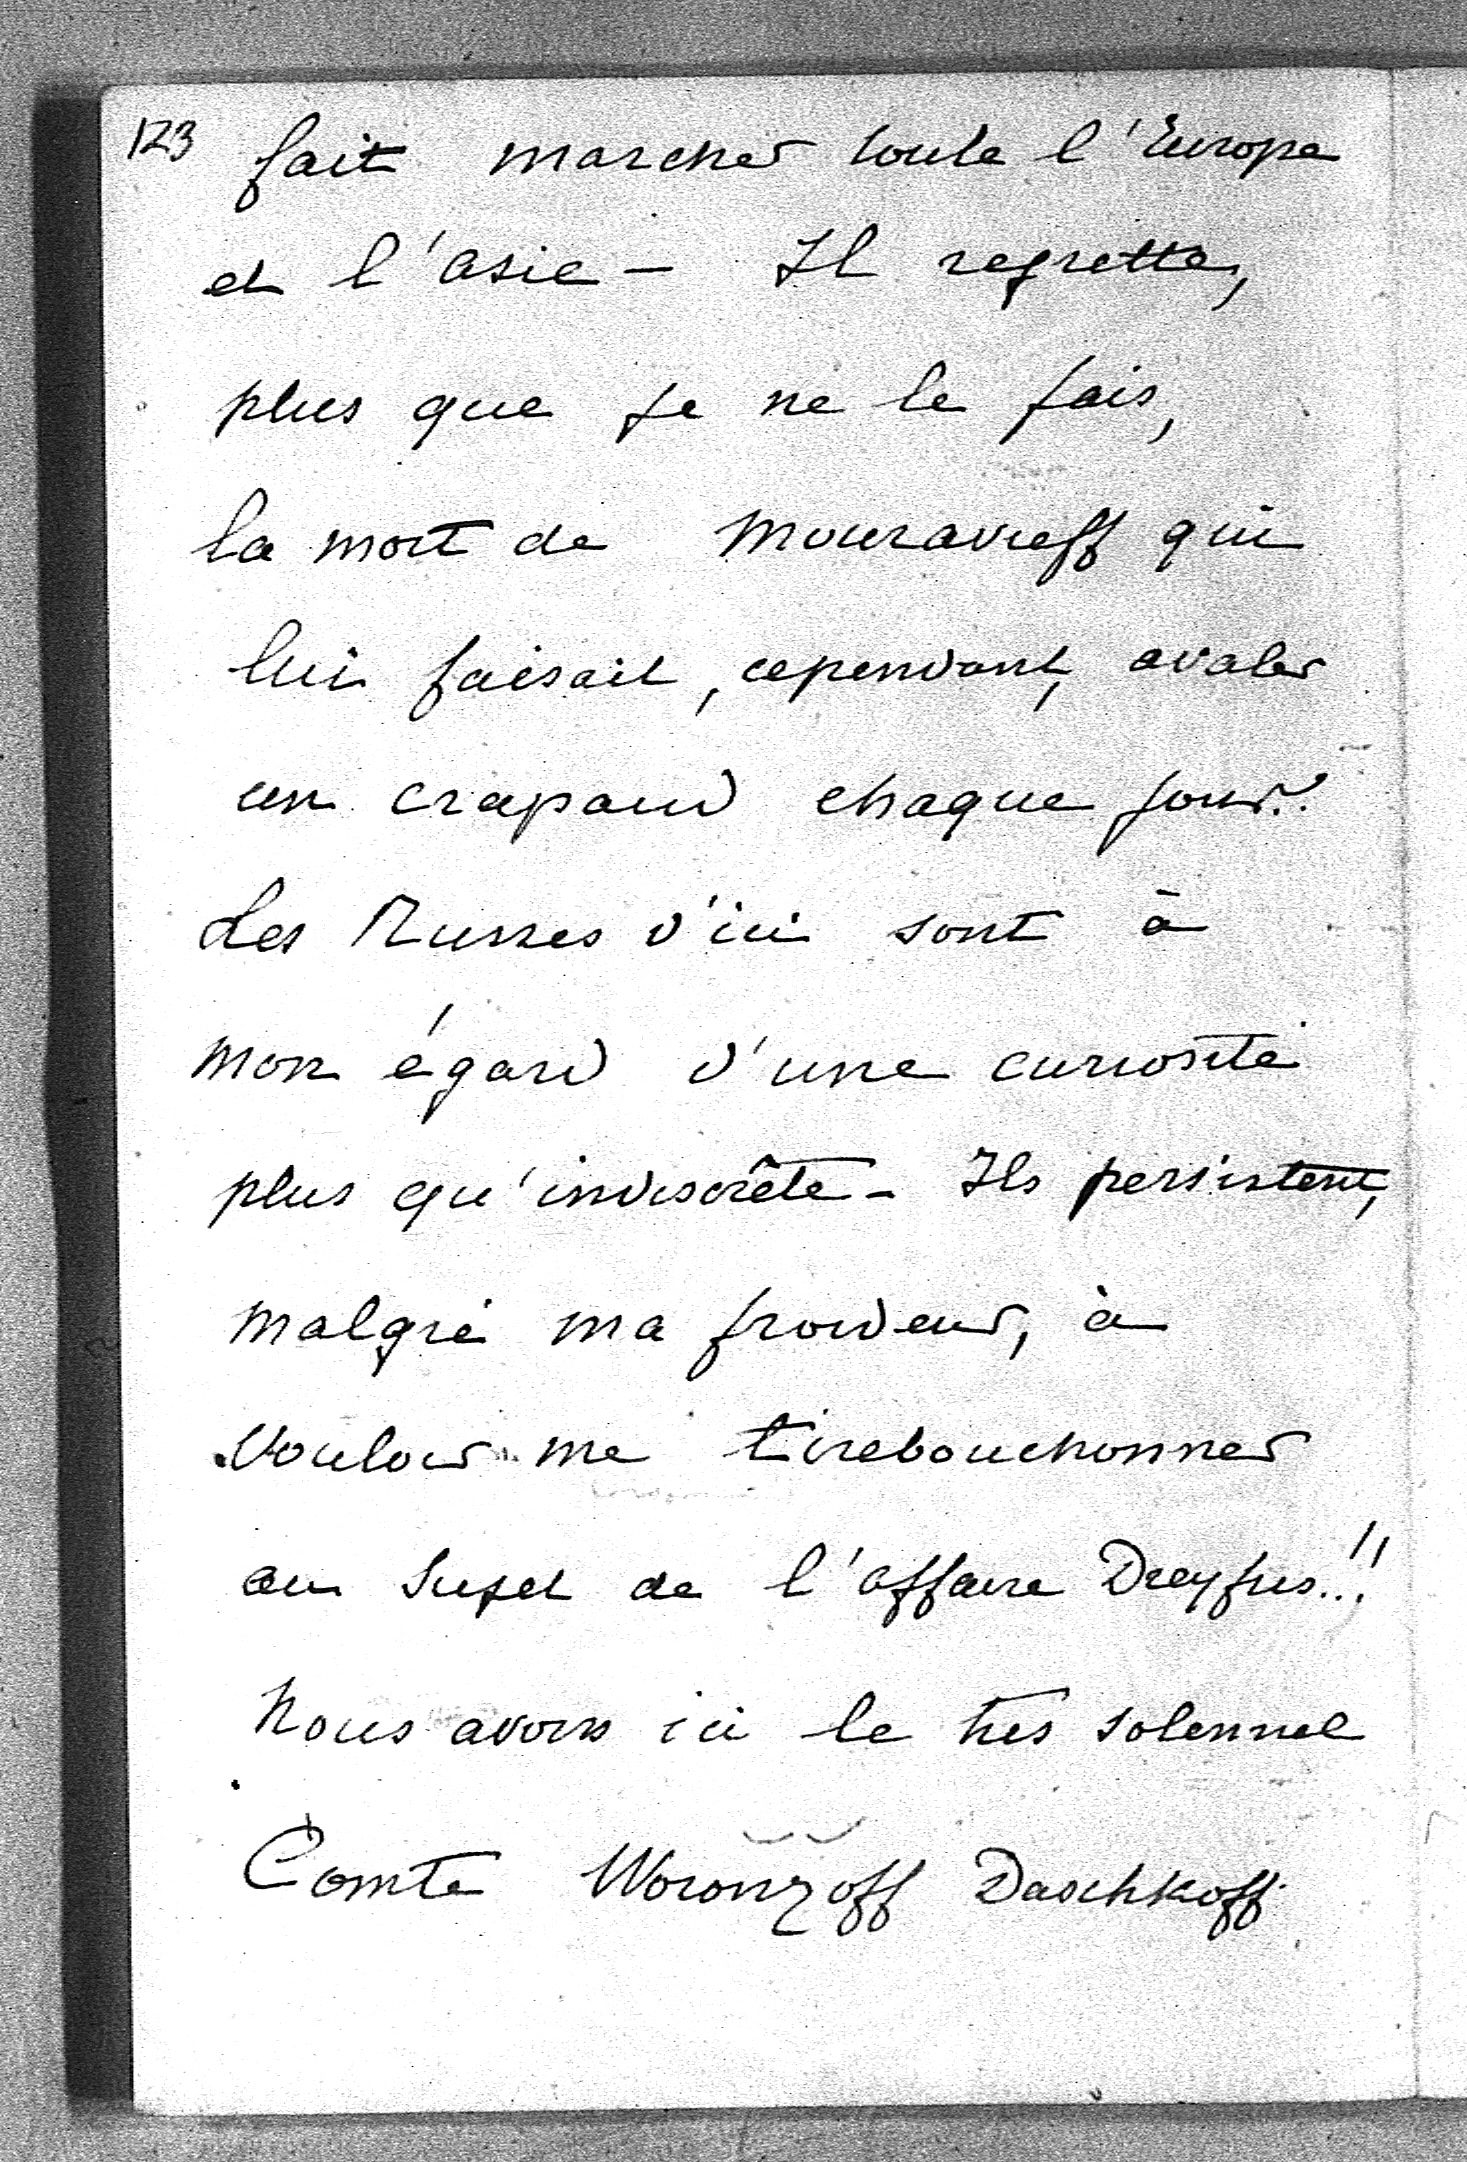 123 fait marcher toute l'Europe
et l'asie - Il regrette,
plus que je ne le fais,
la mort de Mouravieff qui
lui faisait, cependant, avaler
un crapaud chaque jour..
Les Russes d'ici sont à
mon égard d'une curiosité
plus qu'indiscrête - Ils persistent,
malgré ma froideur, à
vouloir me tirebouchonner
au sujet de l'affaire Dreyfus..!!
Nous avons ici le très solennel
Comte Woronzoff Daschkoff.